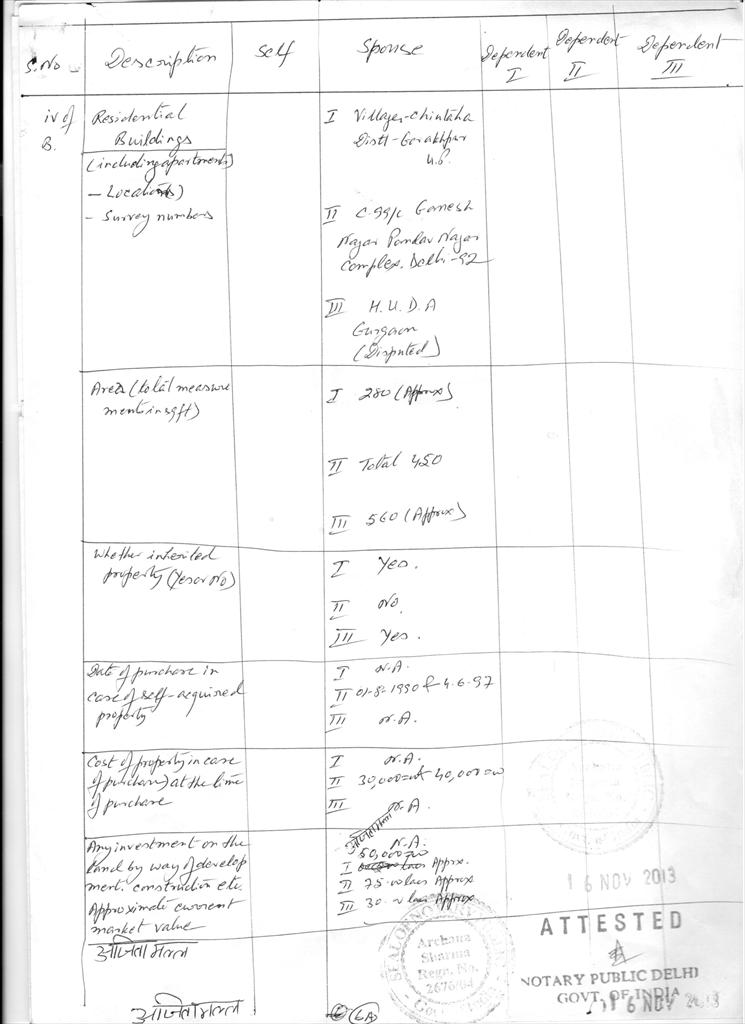 S.No - Description Self Sponse Dependent I Dependent II Dependent III
iv of B. Residential Buildings
(including apartments)
- Locations)
- Survey numbers
I Village-Chintaha
Distt-Gorakhpur
U.P.
II C-99/c Ganesh
Nagar Pandav Nagar
Complex, Delhi-92
III H.U.D.A
Gurgaon
(Disputed)
Area (total measure
ments in sqft)
I 280 (Approx)
II Total 450
III 560 (Approx)
Whether inherited
property (Yes or No)
I Yes.
II No.
III Yes.
Date of purchase in
case of self-acquired
property
I N.A.
II 01-8-1990 & 4-6-97
III N.A.
Cost of property in case
of purchase) at the time
of purchase
I N.A.
II 30,000=00 & 40,000=00
III N.A.
Any investment on the
land by way of develop
ment. construction etc.
N.A.
Approximate current
market value
50,000=00
I Approx.
II 75-00 lacs Approx
III 30-00 lacs Approx
16 NOV 2013
ATTESTED
NOTARY PUBLIC DELHI
GOVT. OF INDIA
16 NOV 2013
Archana
Sharma
Regn. No.
2676/04
6A